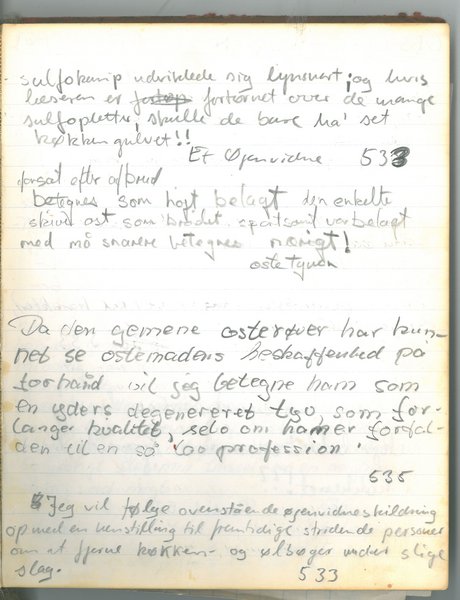 sulfokamp udviklede sig lynsnart; og hvis
læseren er fortørnet over de mange
sulfopletter, skulle de bare ha' set
køkkengulvet!!
Et Øjenvidne 533
forsat efter afbrud
betegnes som højt belagt den enkelte
skive ost som brødet sparsomt var belagt
med må snarere betegnes nærigt!
ostetyven
Da den gemene osterøver har kun-
net se ostemadens beskaffenhed på
forhånd vil jeg betegne ham som
en yders degenereret tyv, som for-
langer kvalitet, selv om han er forfal-
den til en så lav profession.
535
Jeg vil følge ovenstående øjenvidneskildring
op med en henstilling til fremtidige stridende personer
om at fjerne køkken- og ølbøger under slige
slag. 533